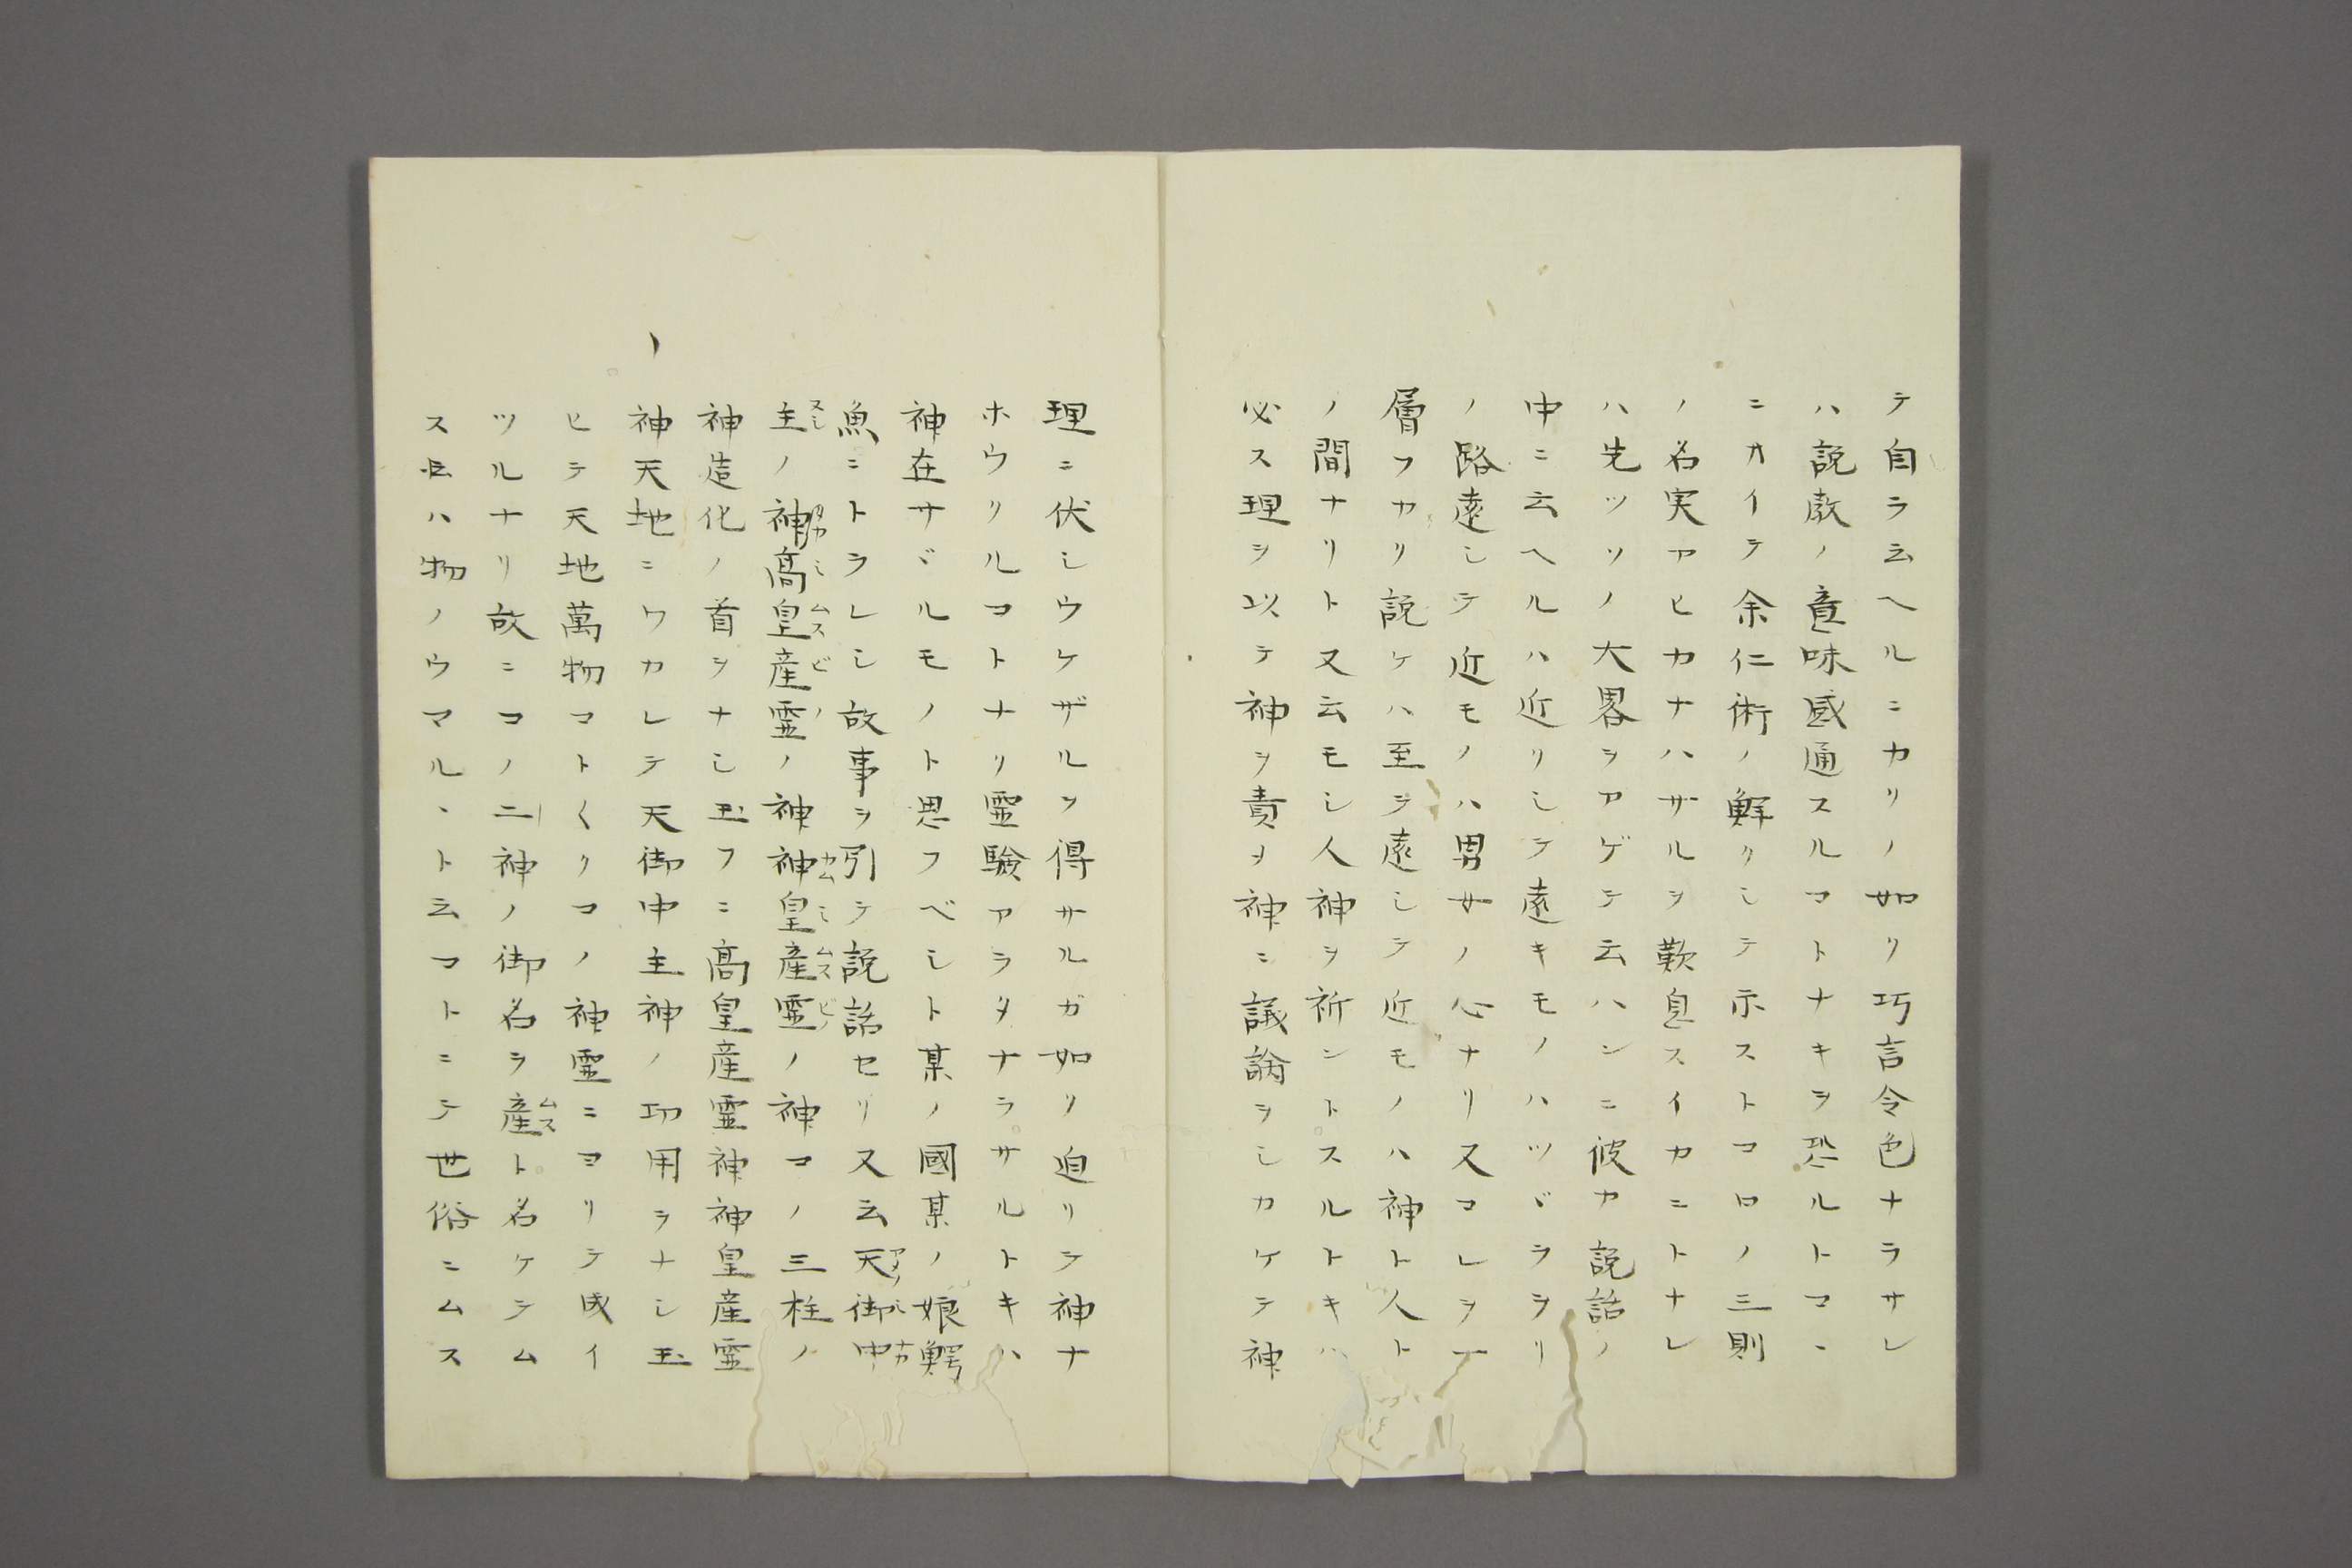 テ自ラ云ヘルニカリノ如リ巧言令色ナラサレ
ハ説教ノ意味感通スルコトナキヲ恐ルトコヽ
ニカイテ余仁術ノ鮮リシテ示ストコロノ三則
ノ名実アヒカナハザルヲ歎息スイカニトナレ
ハ先ツソノ大畧ヲアゲテ云ハンニ彼カ説話ノ
中ニ云ヘルハ近リシテ遠キモノハツヾラヲリ
ノ路遠シテ近モノハ男女ノ心ナリ又コレヲ一
層フカリ説ケハ至ラ遠シテ近モノハ神ト人ト
ノ間ナリト又云モシ人神ヲ祈ントスルトキハ
必ス理ヲ以テ神ヲ責ヲ神ニ議論ヲシカケテ神
理ニ伏シウケザルヲ得サルガ如リ迫リテ神ナ
ホウリルコトナリ霊驗アラタナラサルトキハ
神在サヾルモノト思フベシト某ノ國某ノ娘鰐
魚ニトラレシ故事ヲ引テ説話セリ又云天御中
主ノ神高皇産霊ノ神神皇産霊ノ神コノ三柱ノ
神造化ノ首ヲナシ玉フニ高皇産霊神神皇産霊
神天地ニワカレテ天御中主神ノ功用ヲナシ玉
ヒテ天地萬物コトくリコノ神霊ニヨリテ成イ
ツルナリ故ニコノ二神ノ御名ヲ産ト名ケテム
スヒハ物ノウマルヽト云コトニテ世俗ニムス